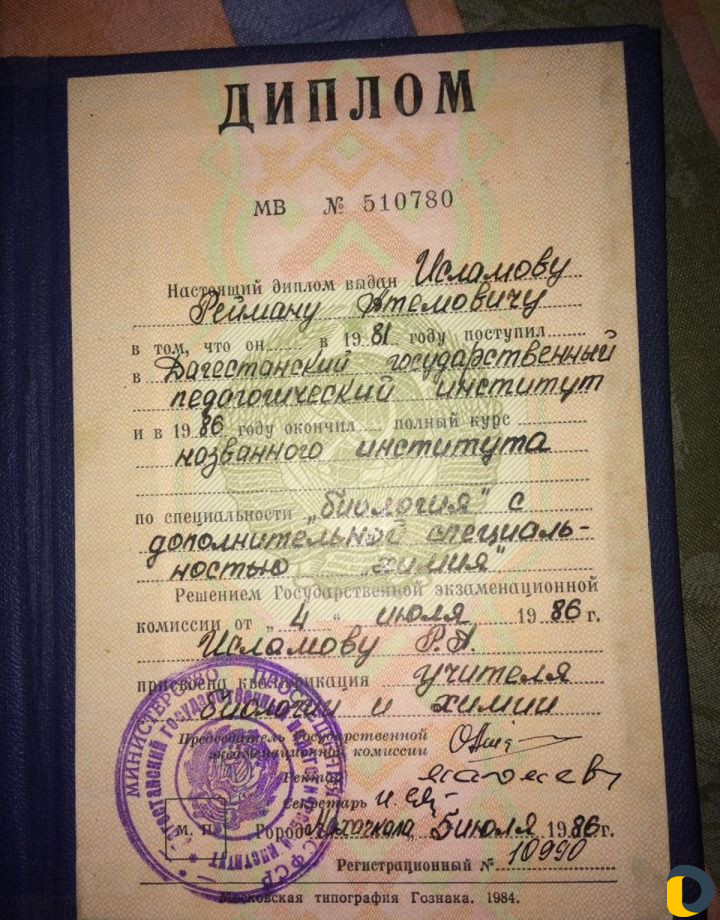 ДИПЛОМ
МВ № 510780
Настоящий диплом выдан Исламову
Рейману Атемовичу
в том, что он в 1981 году поступил
в Дагестанский государственный
педагогический институт
и в 1986 году окончил полный курс
названного института
по специальности „биология" с
дополнительной специаль-
ностью „химия"
Решением Государственной экзаменационной
комиссии от „4" июля 1986 г.
Исламову Р.А.
присвоена квалификация учителя
биологии и химии
Председатель Государственной
экзаменационной комиссии
Ректор
Секретарь
М. П. Город Махачкала, 5 июля 1986 г.
Регистрационный № 10990
Московская типография Гознака. 1984.
МИНИСТЕРСТВО ПРОСВЕЩЕНИЯ РСФСР
ДАГЕСТАНСКИЙ ГОСУДАРСТВЕННЫЙ ПЕДАГОГИЧЕСКИЙ ИНСТИТУТ